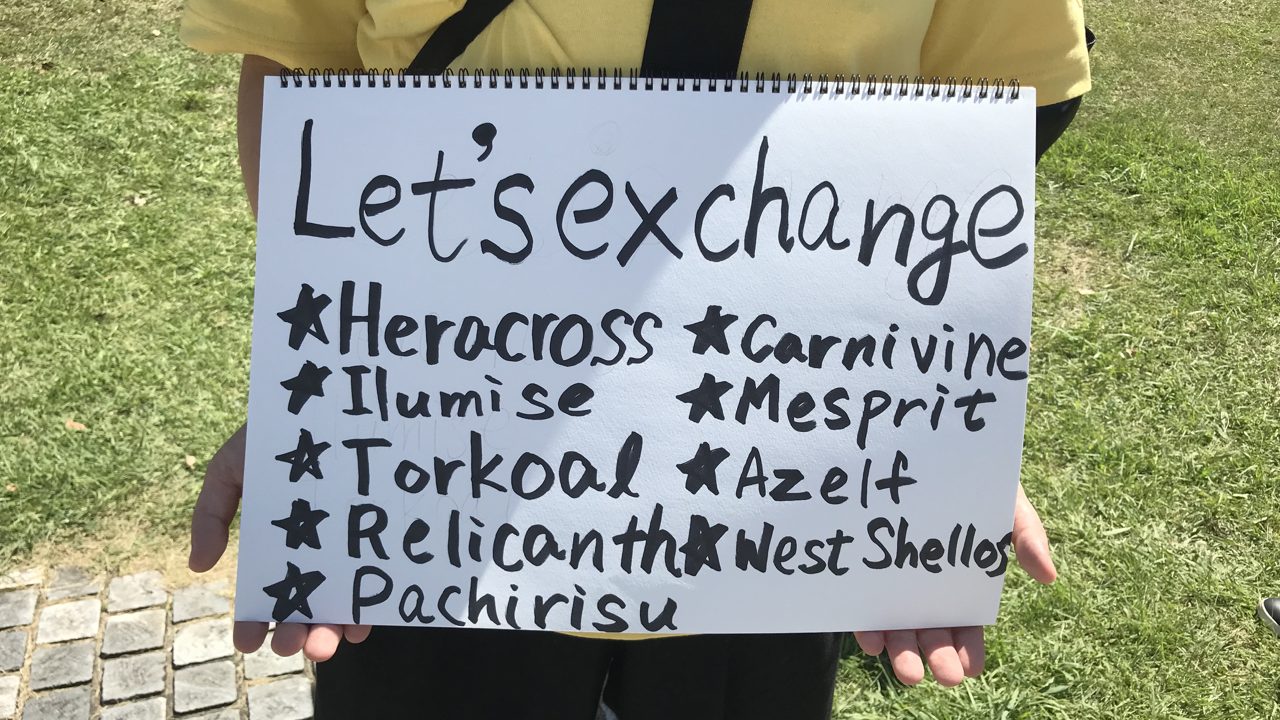 Let's exchange
★Heracross ★Carnivine
★Ilumise ★Mesprit
★Torkoal ★Azelf
★Relicanth ★West Shellos
★Pachirisu